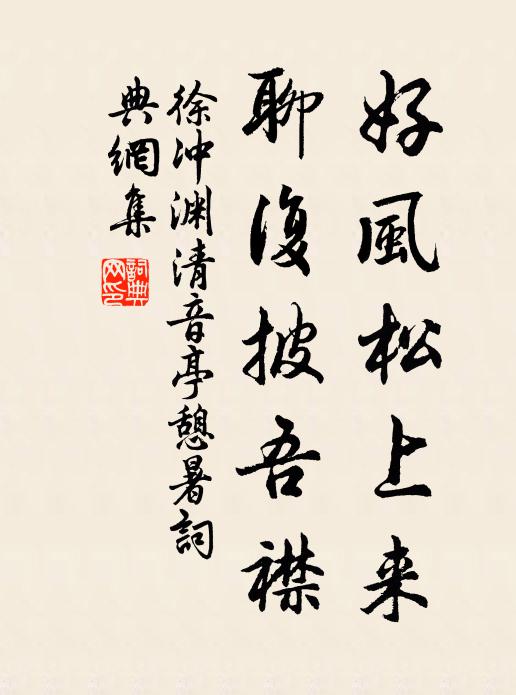 好風松上来
聊復披吾襟
徐沖淵清音亭憩暑詞
典網集
詞典网印